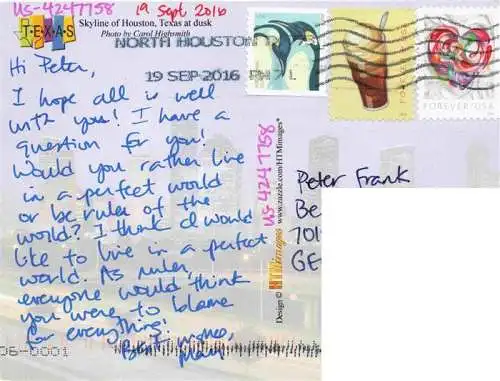 US-4247758 19 Sept 2016
TEXAS
Skyline of Houston, Texas at dusk
Photo by Carol Highsmith
NORTH HOUSTON
19 SEP 2016 PM 7 L
FOREVER USA
Hi Peter,
I hope all is well
with you! I have a
question for you!
Would you rather live
in a perfect world
or be ruler of the
world? I think I would
like to live in a perfect
world. As ruler,
everyone would think
you were to blame
for everything!
Best wishes,
Mary
06-0001
US-4247758
Design © HTMimages www.zazzle.com/HTMimages*
Peter Frank
Be
701
GE